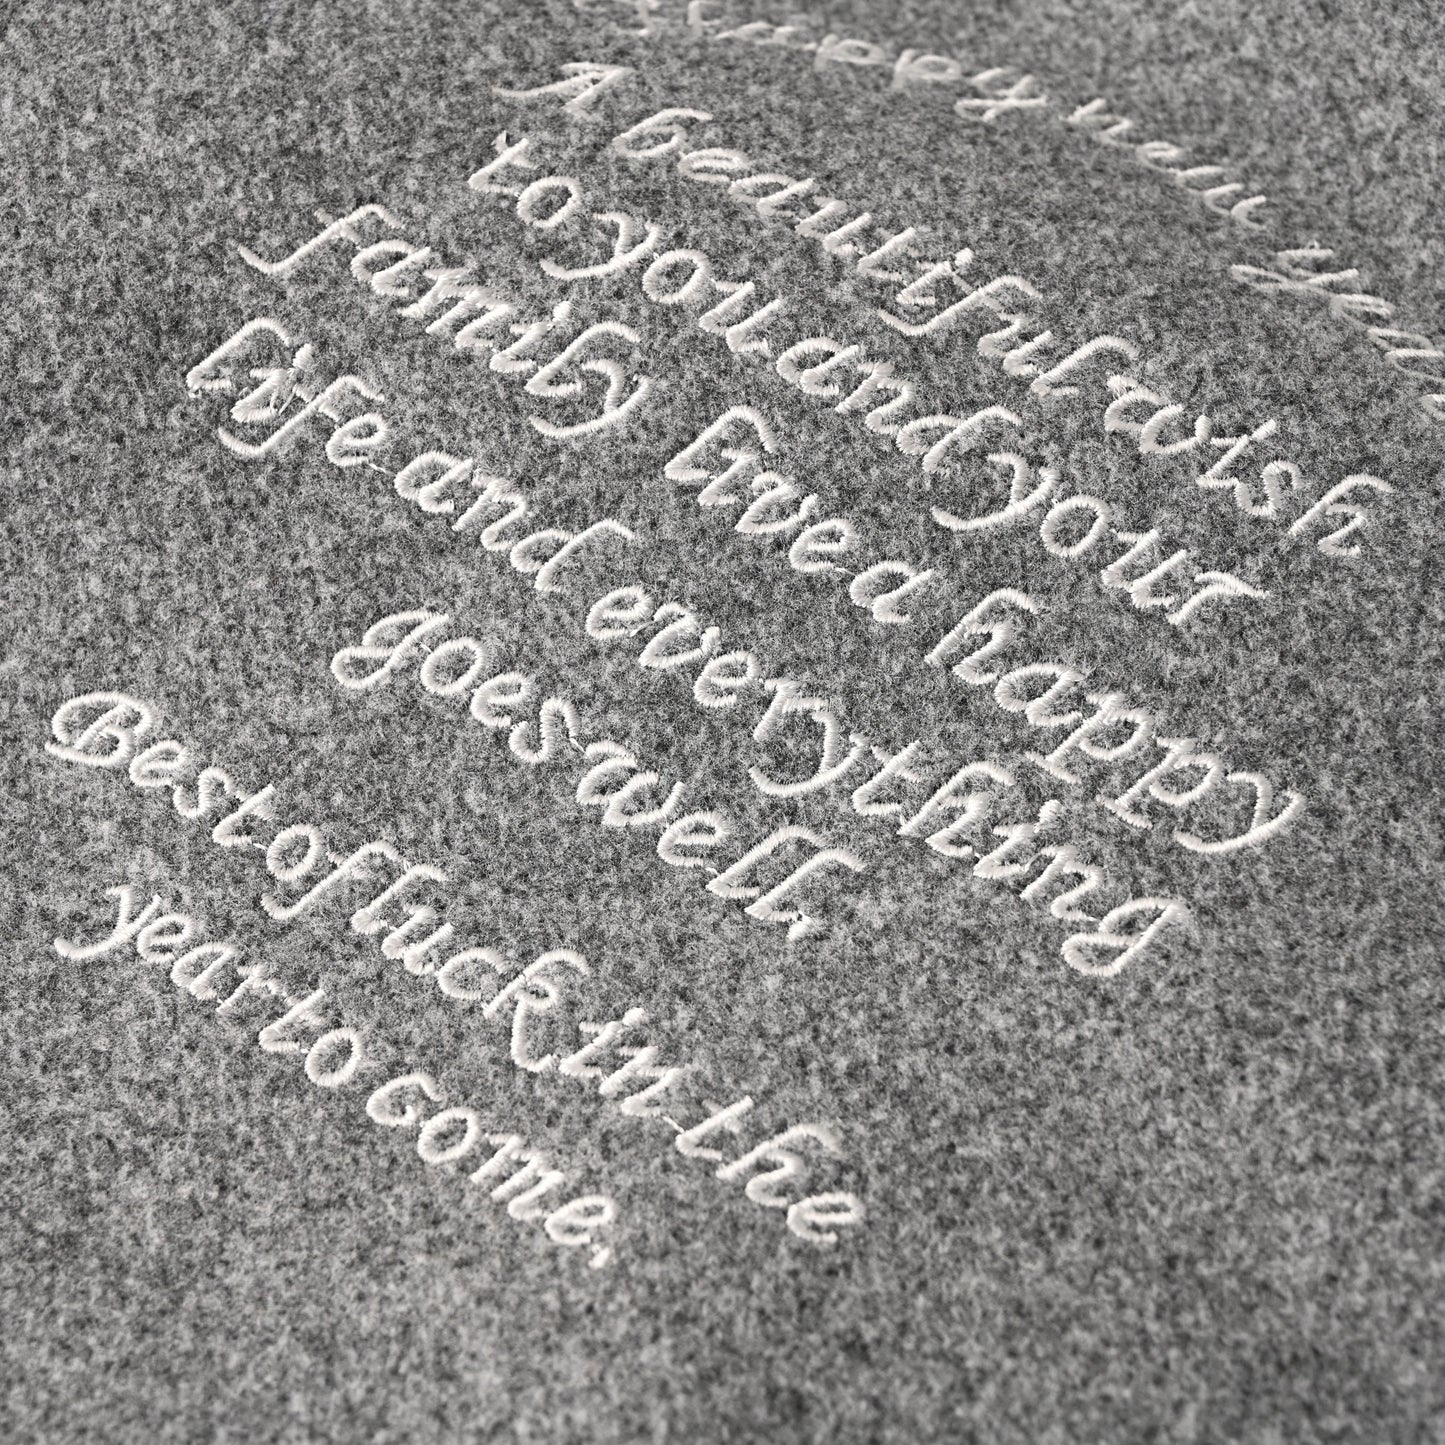 Happy new
A beautiful wish
to you and your
family lived happy
life and everything
goes well.
Best of luck in the
year to come.